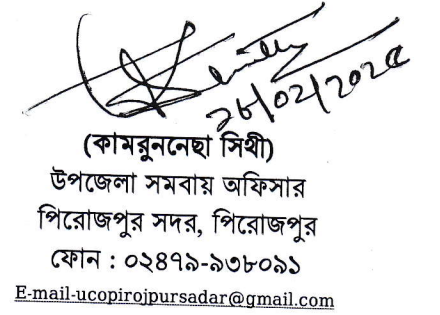 ২৮/০২/২০২৫
(কামরুননেছা সিথী)
উপজেলা সমবায় অফিসার
পিরোজপুর সদর, পিরোজপুর
ফোন : ০২৪৭৯-৯৩৮০৯১
E-mail-ucopirojpursadar@gmail.com